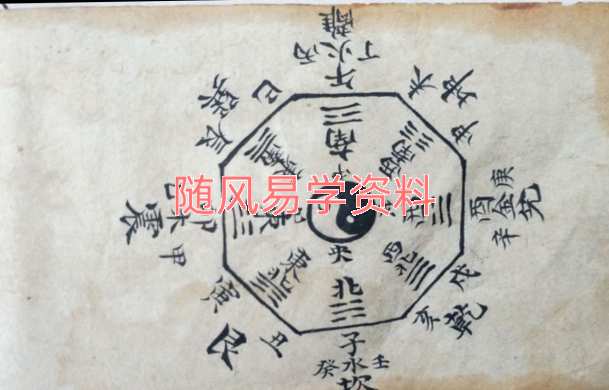 離
丁火丙
午
南
巳
巽
辰
未
坤
申
東南
西南
随风易学资料
乙
震
卯木
甲
東
西
庚
酉金兑
辛
中
央
東北
西北
北
寅
艮
丑
戌
乾
亥
子
癸水壬
坎